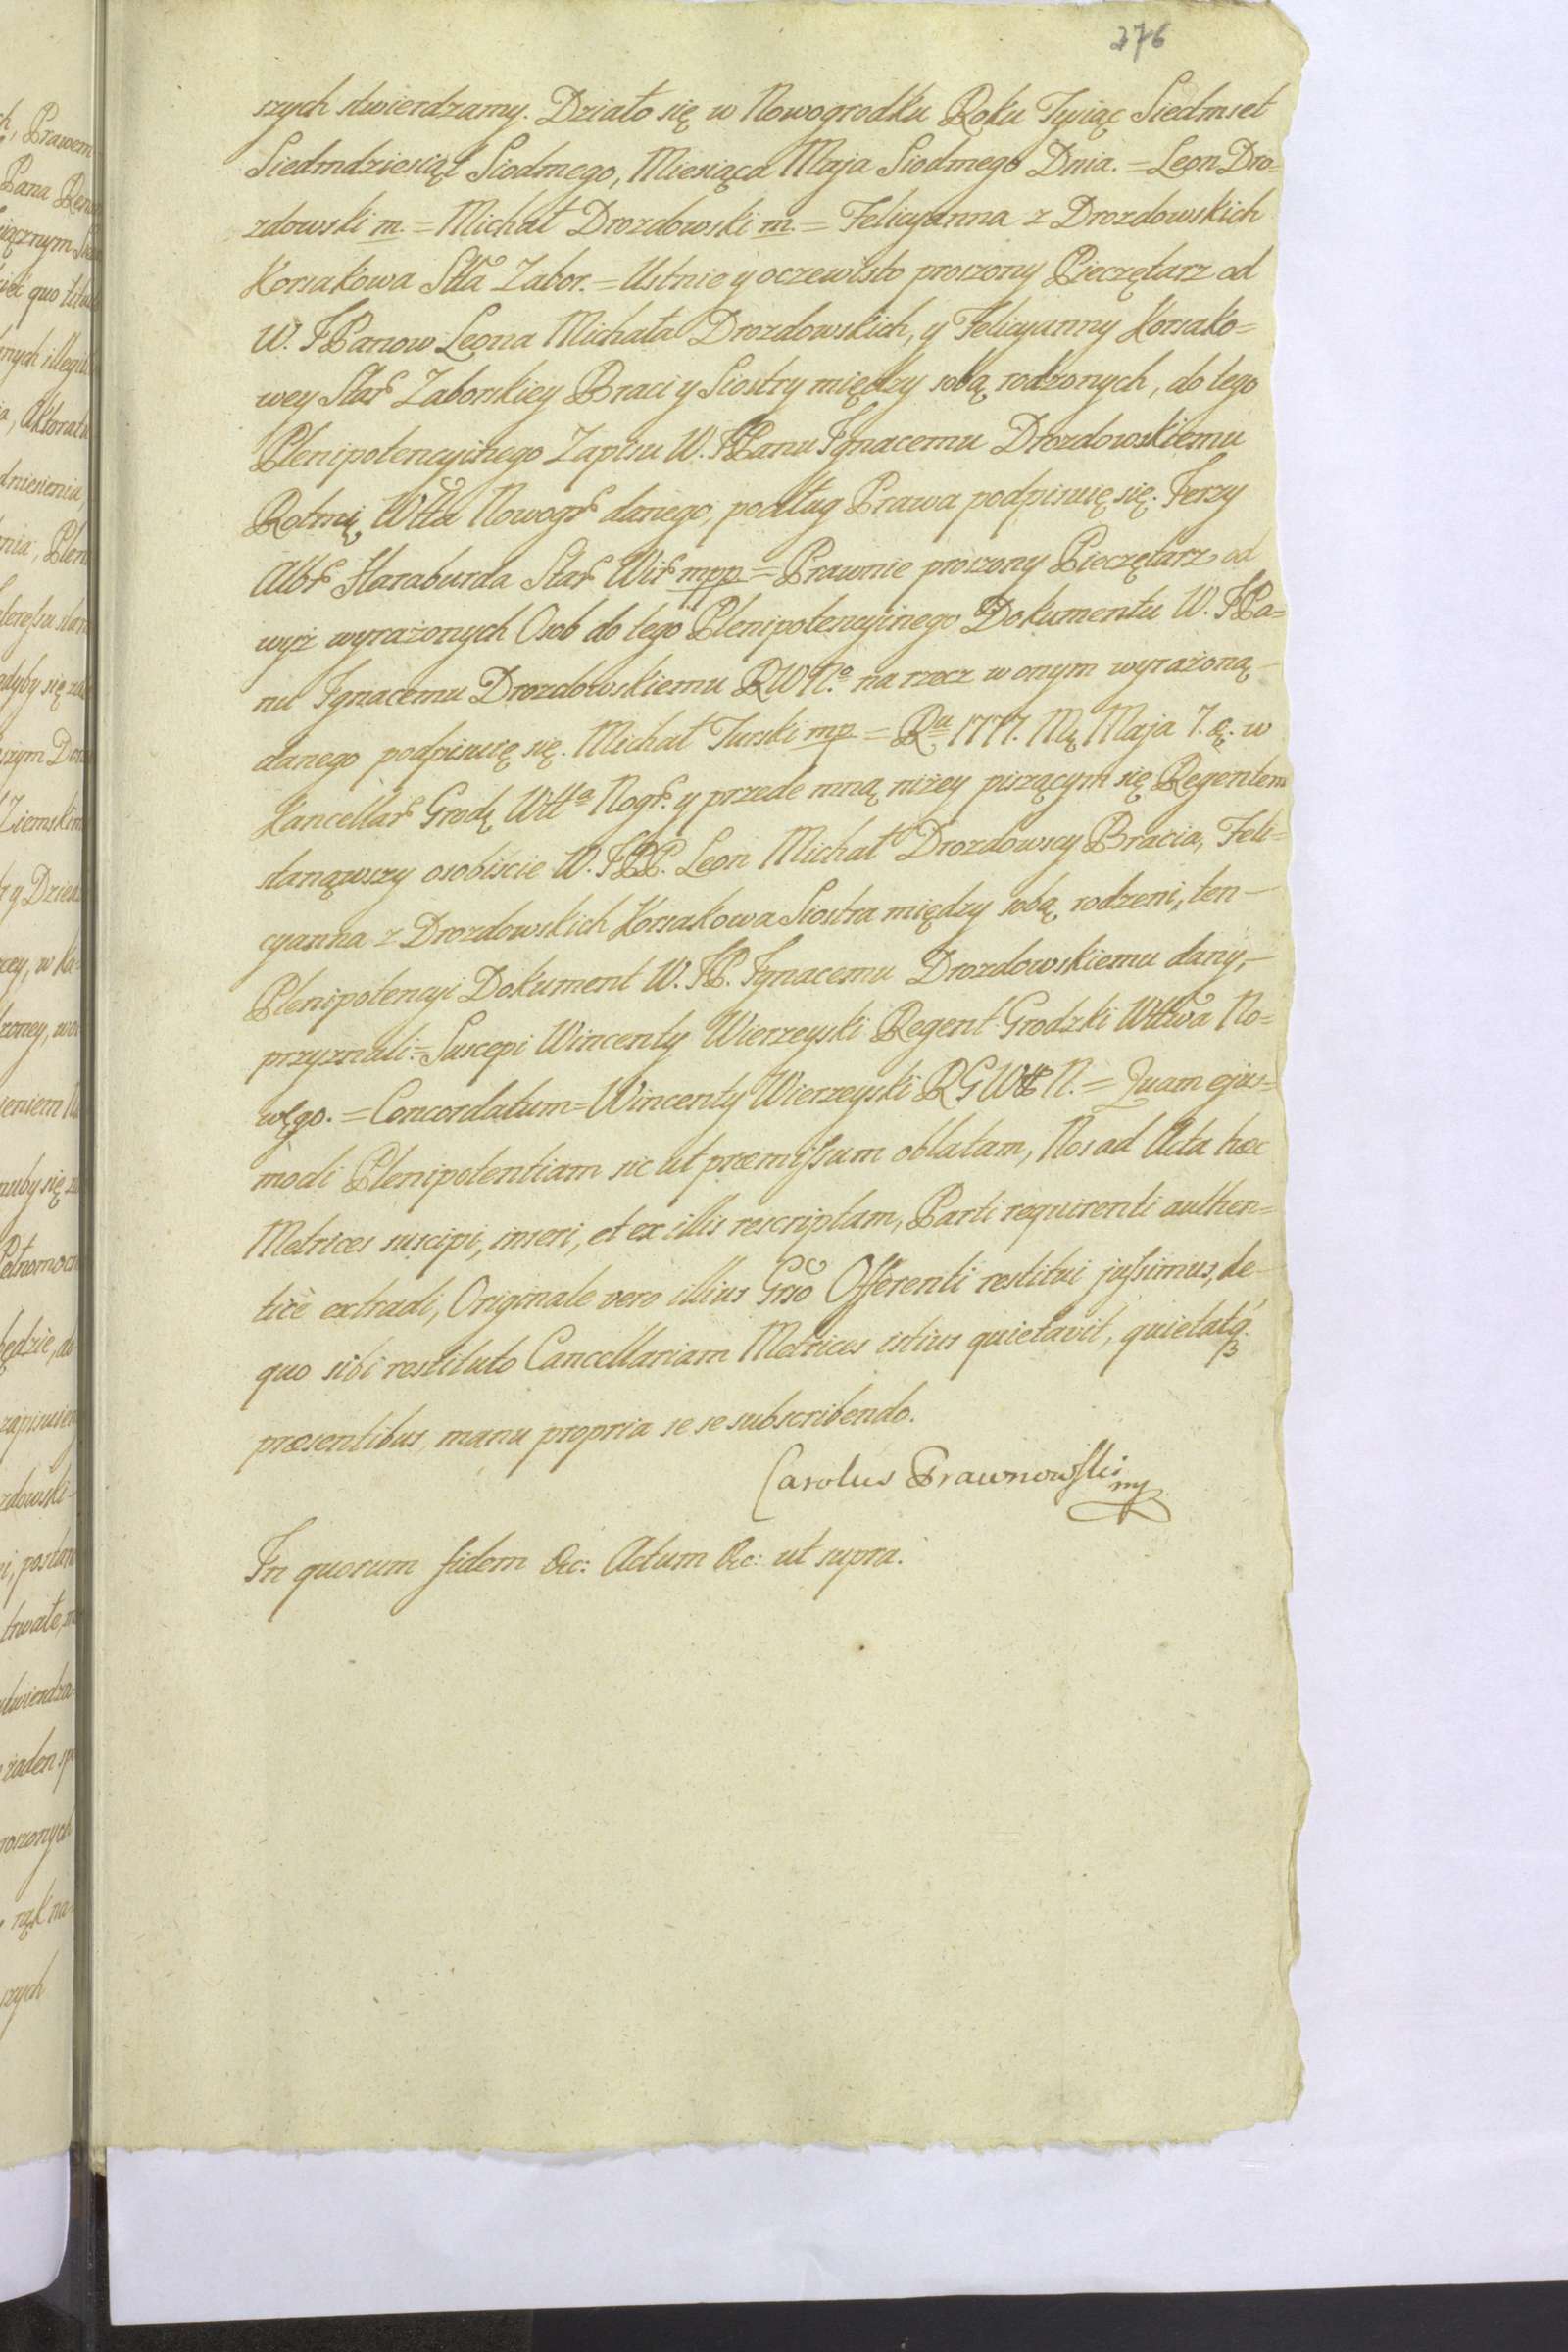 376
szych stwierdzamy. Działo się w Nowogrodku Roku Tysiąc Siedmset
Siedmdziesiąt Siodmego, Miesiąca Maja Siodmego Dnia. = Leon Dro=
zdowski m. = Michał Drozdowski m. = Felicyanna z Drozdowskich
Korsakowa Stta Zabor. = Ustnie y oczewisto proszony Pieczętarz od
W. JPanow Leona Michała Drozdowskich, y Felicyanny Korsako=
wey Star Zaborskiey Braci y Siostry między sobą rodzonych, do tego
Plenipotencyinego Zapisu W. JPanu Ignacemu Drozdowskiemu
Rotmi Wttа Nowogr danego, podług Prawa podpisuię się. Jerzy
Albr Haraburda Star Wir mpp = Prawnie proszony Pieczętarz od
wyż wyrażonych Osob do tego Plenipotencyinego Dokumentu W. JPa=
nu Ignacemu Drozdowskiemu RWNo. na rzecz w onym wyrażoną
danego podpisuię się. Michał Turski mp = Ru 1777. Mą Maja 7. d. w
Kancellar Grodz Wtta Nogr. y przede mną niżey piszącym się Regentem
stanąwszy osobiscie W. JPP. Leon Michał Drozdowscy Bracia, Feli=
cyanna z Drozdowskich Korsakowa Siostra między sobą rodzeni, ten
Plenipotencyi Dokument W. JP. Ignacemu Drozdowskiemu dany,
przyznali = Suscepi Wincenty Wierzeyski Regent Grodzki Wttwa No=
wgo. = Concordatum = Wincenty Wierzeyski RGWtt N. = Quam ejus=
modi Plenipotentiam sic ut præmissum oblatam, Nos ad Acta hæc
Metrices suscipi, inseri, et ex illis rescriptam, Parti requirenti authen=
ticè extradi, Originale vero illius Grso Offerenti restitui jussimus, de
quo sibi restituto Cancellariam Metrices istius quietavit, quietatq3
præsentibus, manu propria se se subscribendo.
Carolus Prawnowski mp
In quorum fidem &c: Actum &c: ut supra.